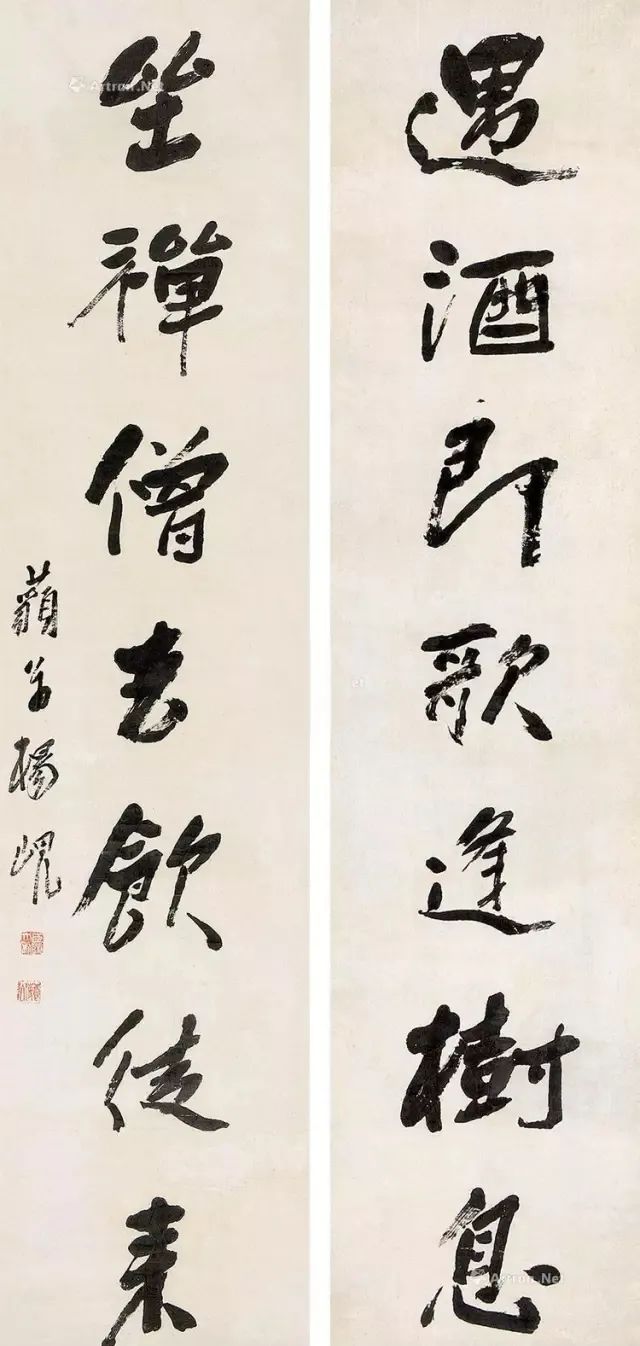 遇酒即歌逢樹息
坐禪僧去飲徒来
藐翁楊峴
Artron.Net
Artron.Net